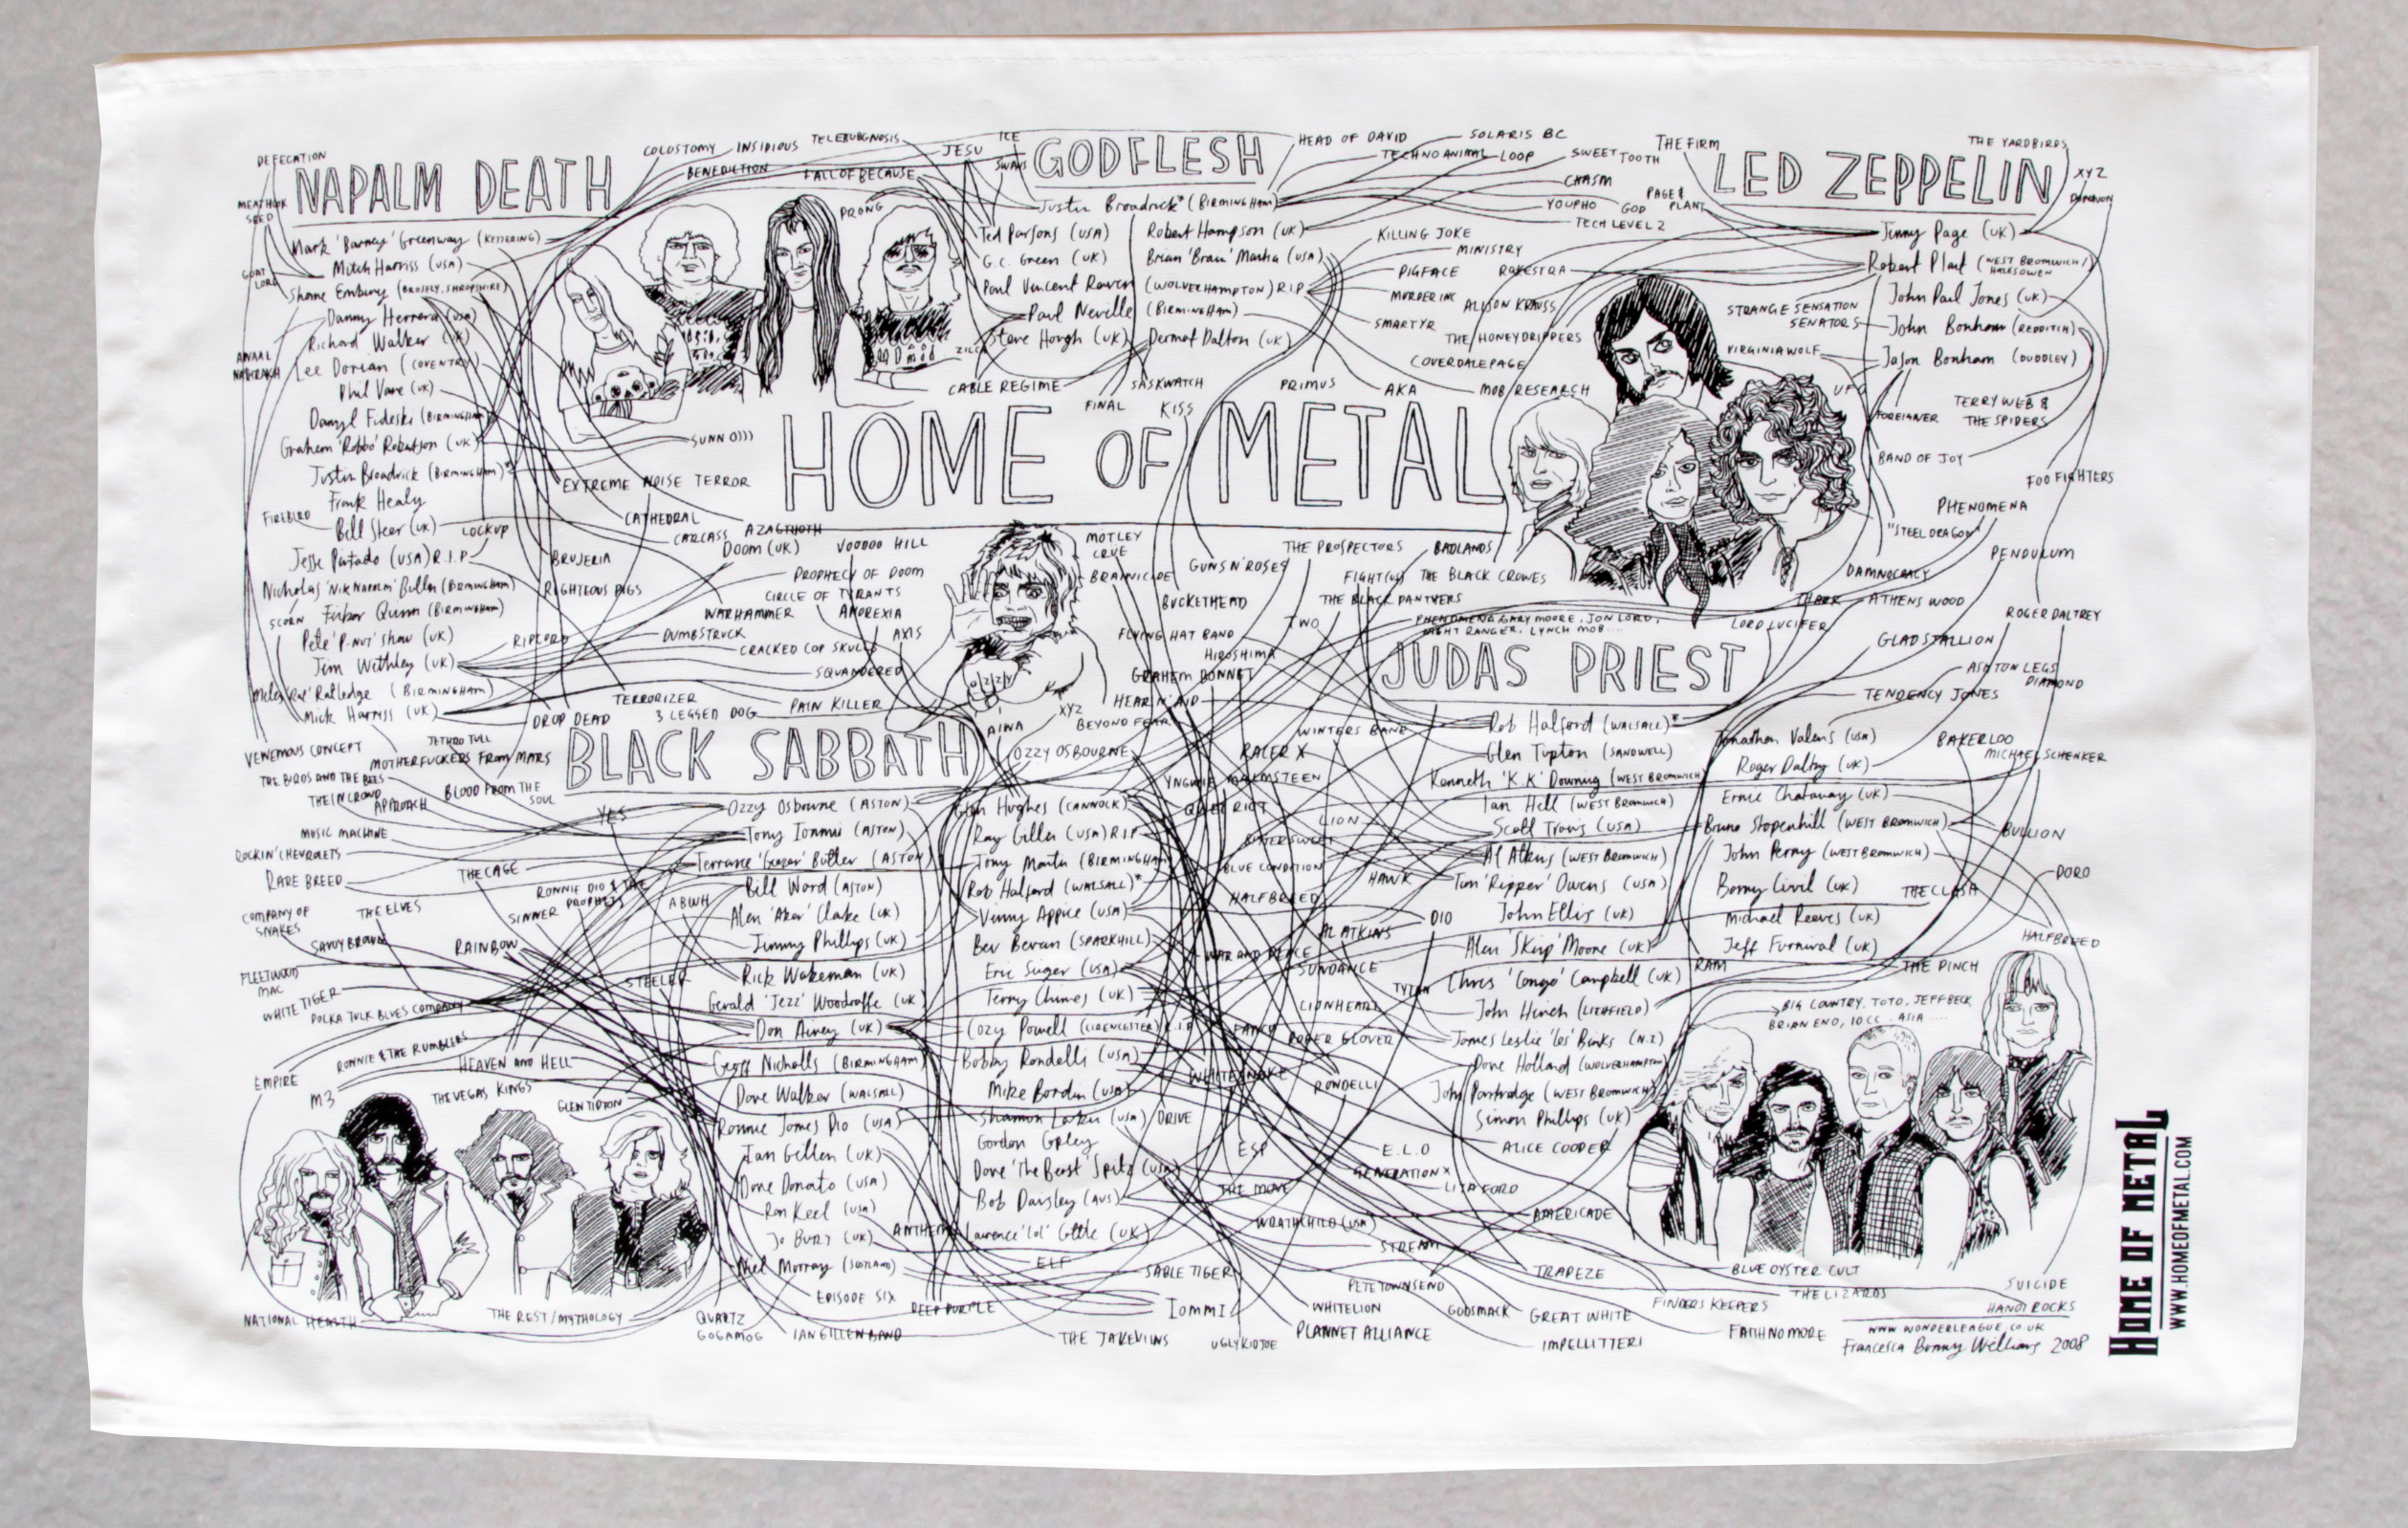 DEFECATION
NAPALM DEATH
MEATHOOK
SEED
Mark 'Barney' Greenway (KETTERING)
Mitch Harriss (USA)
GOAT
LORD
Shane Embury (BROSELY, SHROPSHIRE)
Danny Herrera (USA)
Richard Walker (UK)
ANAAL
NATHRAKH
Lee Dorian (COVENTRY)
Phil Vane (UK)
Darryl Fideski (BIRMINGHAM)
Graham 'Robbo' Robertson (UK)
Justin Broadrick (BIRMINGHAM)*
Frank Healy
FIREBIRD
Bill Steer (UK)
LOCKUP
Jesse Pintado (USA) R.I.P
Nicholas 'Nik Napalm' Bullen (BIRMINGHAM)
SCORN
Finbar Quinn (BIRMINGHAM)
Pete 'P-Nut' Shaw (UK)
RIPCORD
Jim Withley (UK)
Miles 'Rat' Ratledge (BIRMINGHAM)
Mick Harriss (UK)
COLOSTOMY
INSIDIOUS
TELERUBGNOSIS
BENEDICTION
FALL OF BECAUSE
JESU
ICE
SWANS
PRONG
GODFLESH
Justin Broadrick* (BIRMINGHAM)
Ted Parsons (USA)
Robert Hampson (UK)
G.C. Green (UK)
Brian 'Brain' Mantia (USA)
Paul Vincent Raven (WOLVERHAMPTON) R.I.P
Paul Neville (BIRMINGHAM)
Steve Hough (UK)
Dermot Dalton (UK)
CABLE REGIME
SASKWATCH
FINAL
KISS
PRIMUS
AKA
MOB RESEARCH
HEAD OF DAVID
SOLARIS BC
TECHNO ANIMAL
LOOP
SWEET TOOTH
CHASM
YOUPHO
GOD
TECH LEVEL 2
KILLING JOKE
MINISTRY
PIGFACE
MURDER INC
SMARTYR
ROVESTRA
ALISON KRAUSS
THE HONEYDRIPPERS
COVERDALE PAGE
THE FIRM
PAGE &
PLANT
LED ZEPPELIN
THE YARDBIRDS
XYZ
Jimmy Page (UK)
Robert Plant (WEST BROMWICH/
HALESOWEN
John Paul Jones (UK)
STRANGE SENSATION
SENATORS
John Bonham (REDDITCH)
VIRGINIA WOLF
Jason Bonham (DUDDLEY)
UFO
FOREIGNER
TERRY WEB &
THE SPIDERS
BAND OF JOY
FOO FIGHTERS
PHENOMENA
"STEEL DRAGON"
PENDULUM
DAMNOCRACY
ATHENS WOOD
LORD LUCIFER
ROGER DALTREY
GLAD STALLION
ASHTON LEGS
DIAMOND
TENDENCY JONES
HOME OF METAL
SUNN O)))
EXTREME NOISE TERROR
CATHEDRAL
CARCASS
AZAGTHOTH
DOOM (UK)
VOODOO HILL
BRUJERIA
PROPHECY OF DOOM
RIGHTEOUS PIGS
CIRCLE OF TYRANTS
WARHAMMER
ANOREXIA
DUMBSTRUCK
AXIS
CRACKED COP SKULLS
SQUANDERED
TERRORIZER
PAIN KILLER
DROP DEAD
3 LEGGED DOG
OZZY
MOTLEY
CRUE
BRAINICIDE
GUNS N' ROSES
BUCKETHEAD
THE PROSPECTORS
BADLANDS
FIGHT (US)
THE BLACK CROWES
THE BLACK PANTHERS
TWO
FLYING HAT BAND
HIROSHIMA
GRAHEM BONNET
HEAR N' AID
AINA
XYZ
BEYOND FEAR
OZZY OSBOURNE
PHENOMENA, GARY MOORE, JON LORD,
NIGHT RANGER, LYNCH MOB....
JUDAS PRIEST
Rob Halford (WALSALL)*
Glen Tipton (SANDWELL)
Kenneth 'K.K' Downing (WEST BROMWICH)
Ian Hill (WEST BROMWICH)
Scott Travis (USA)
Al Atkins (WEST BROMWICH)
Tim 'Ripper' Owens (USA)
John Ellis (UK)
Alan 'Skip' Moore (UK)
Chris 'Congo' Campbell (UK)
John Hinch (LITCHFIELD)
James Leslie 'Les' Binks (N.I)
Dave Holland (WOLVERHAMPTON)
John Partridge (WEST BROMWICH)
Simon Phillips (UK)
Jonathan Valens (USA)
Roger Daltry (UK)
Ernie Chataway (UK)
Bruno Stapenhill (WEST BROMWICH)
John Perry (WEST BROMWICH)
Barry Civil (UK)
Michael Reeves (UK)
Jeff Furnival (UK)
BAKERLOO
MICHAEL SCHENKER
BULLION
DORO
THE CLASH
HALFBREED
THE PINCH
RAM
BIG COUNTRY, TOTO, JEFF BECK
BRIAN ENO, 10CC, ASIA
VENEMOUS CONCEPT
JETHRO TULL
MOTHERFUCKERS FROM MARS
THE BIRDS AND THE BEES
THE IN CROWD
APPROACH
BLOOD FROM THE
SOUL
MUSIC MACHINE
ROCKIN' CHEVROLETS
RARE BREED
THE CAGE
COMPANY OF
SNAKES
THE ELVES
SINNER
RONNIE DIO & THE
PROPHETS
SAVOY BROWN
RAINBOW
FLEETWOOD
MAC
WHITE TIGER
POLKA TULK BLUES COMPANY
RONNIE & THE RUMBLERS
HEAVEN AND HELL
EMPIRE
M3
THE VEGAS KINGS
GLEN TIPTON
YES
ABWH
STEELER
BLACK SABBATH
Ozzy Osbourne (ASTON)
Tony Iommi (ASTON)
Terrance 'Geezer' Butler (ASTON)
Bill Ward (ASTON)
Alan 'Aker' Clarke (UK)
Jimmy Phillips (UK)
Rick Wakeman (UK)
Gerald 'Jezz' Woodroffe (UK)
Don Airey (UK)
Geoff Nicholls (BIRMINGHAM)
Dave Walker (WALSALL)
Ronnie James Dio (USA)
Ian Gillen (UK)
Dave Donato (USA)
Ron Keel (USA)
Jo Burt (UK)
Neil Murray (SCOTLAND)
Glen Hughes (CANNOCK)
Ray Gillen (USA) R.I.P
Tony Martin (BIRMINGHAM)
Rob Halford (WALSALL)*
Vinny Appice (USA)
Bev Bevan (SPARKHILL)
Eric Singer (USA)
Terry Chimes (UK)
Cozy Powell (CIRENCESTER) R.I.P
Bobby Rondelli (USA)
Mike Bordin (USA)
Shannon Larkin (USA)
DRIVE
Gordon Copley
Dave 'The Beast' Spitz (USA)
Bob Daisley (AUS)
Laurence 'Lol' Cottle (UK)
ANTHEM
ELF
WINTERS BANE
RACER X
YNGWIE MALMSTEEN
QUIET RIOT
LION
BITTERSWEET
BLUE CONDITION
HAWK
HALFBREED
DIO
AL ATKINS
WAR AND PEACE
SUNDANCE
TYTAN
LIONHEART
ROGER GLOVER
WHITESNAKE
RONDELLI
ESP
E.L.O
ALICE COOPER
GENERATION X
THE MOVE
LITA FORD
WRATHCHILD (USA)
AMERICADE
STREAM
SABLE TIGER
PETE TOWNSEND
TRAPEZE
BLUE OYSTER CULT
SUICIDE
THE LIZARDS
EPISODE SIX
DEEP PURPLE
IOMMI
WHITELION
GODSMACK
GREAT WHITE
FINDERS KEEPERS
HANOI ROCKS
NATIONAL HEALTH
THE REST/MYTHOLOGY
QUARTZ
GOGAMOG
IAN GILLEN BAND
THE JAKEVILNS
UGLY KID JOE
PLANNET ALLIANCE
IMPELLITTERI
FAITH NO MORE
WWW.WONDERLEAGUE.CO.UK
Francesca Bonny Williams 2008
HOME OF METAL
WWW.HOMEOFMETAL.COM